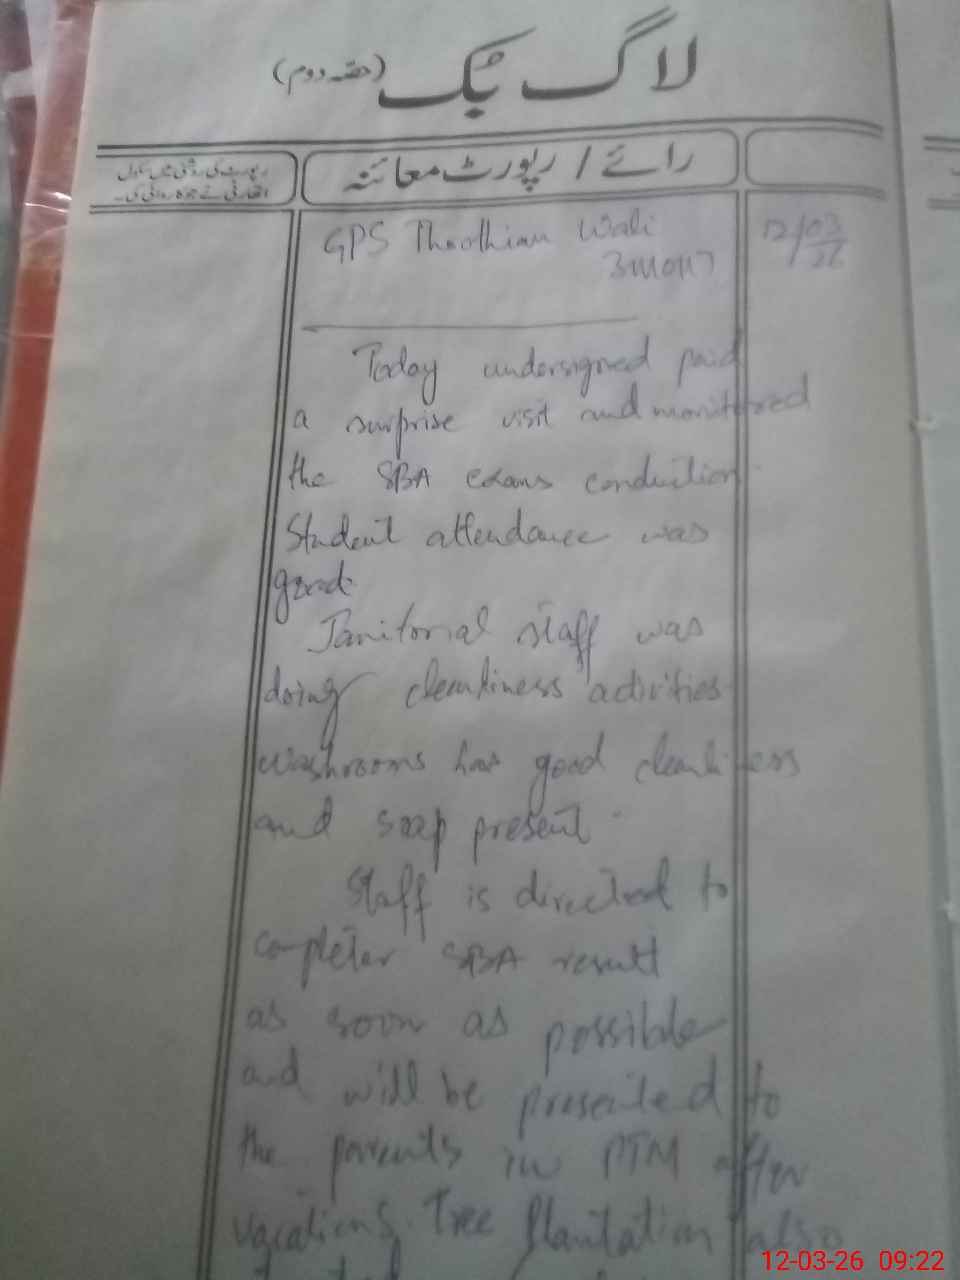 لاگ بُک (حصہ دوم)
رائے / رپورٹ معائنہ
رپورٹ کی روشنی میں سکول
اتھارٹی نے جو کارروائی کی۔
GPS Thoothian Wali
12/03/26
Today undersigned paid
a surprise visit and monitored
the SBA exams conduction
Student attendance was
good.
Janitorial staff was
doing cleanliness activities
washrooms has good cleanliness
and soap present.
Staff is directed to
completer SBA result
as soon as possible
and will be presented to
the parents in PTM after
vacations. Tree Plantation also
12-03-26 09:22